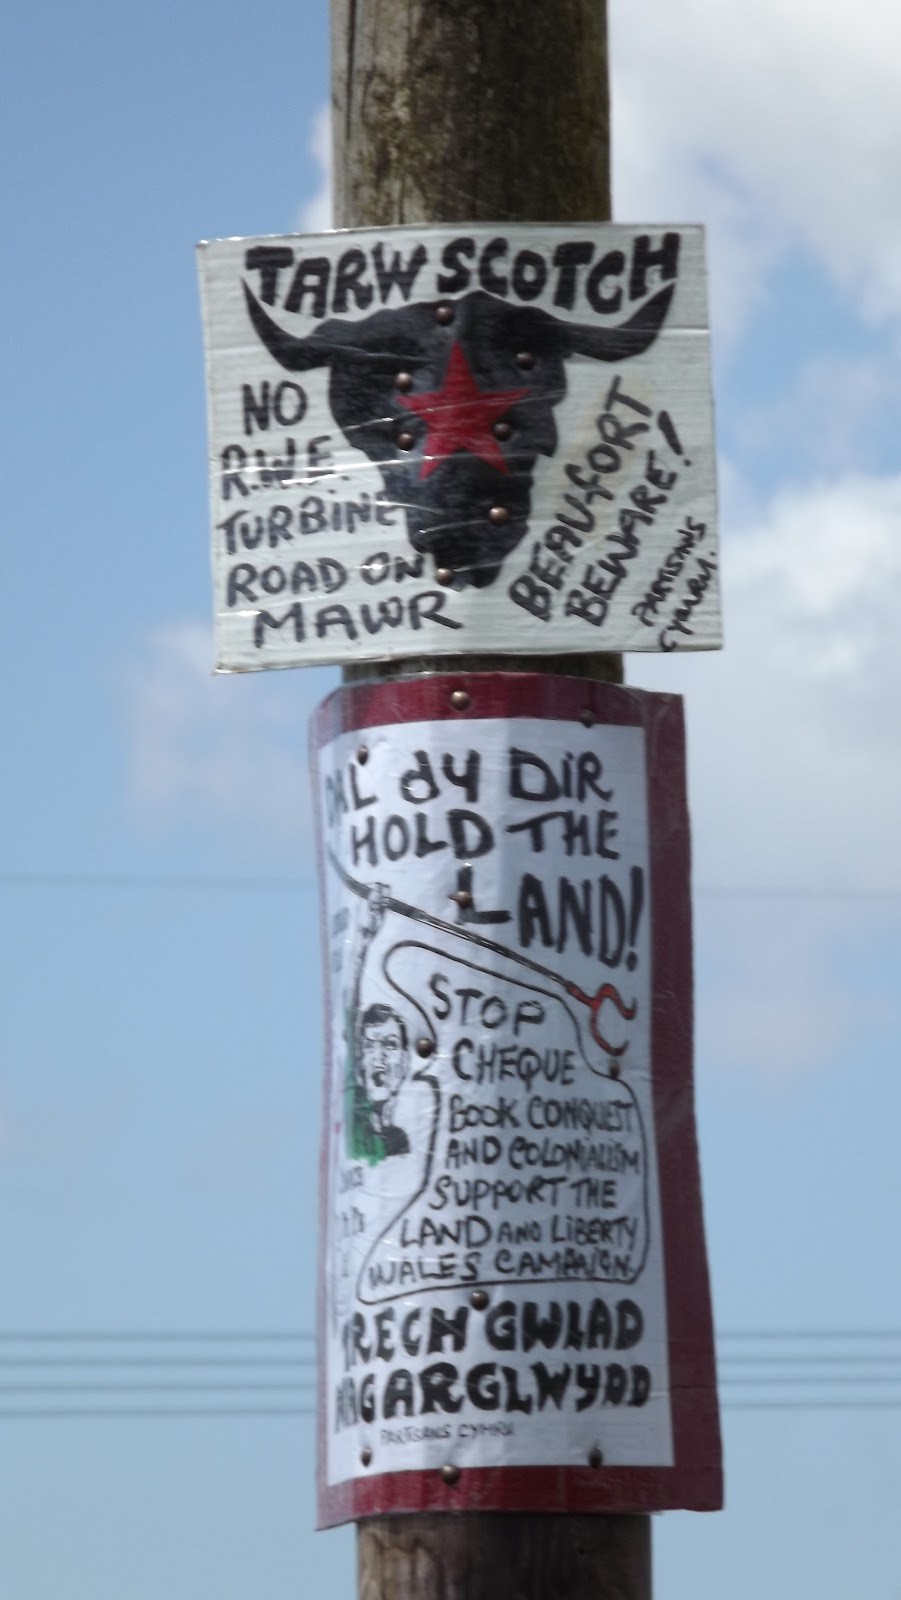 TARW SCOTCH
NO
R.W.E.
TURBINE
ROAD ON
MAWR
BEAUFORT
BEWARE!
PARTISANS
CYMRU.
DAL dy DiR
HOLD THE
LAND!
STOP
CHEQUE
BOOK CONQUEST
AND COLONIALISM
SUPPORT THE
LAND AND LiBERTY
WALES CAMPAIGN.
TRECH GWLAD
NAG ARGLWYDD
PARTISANS CYMRU